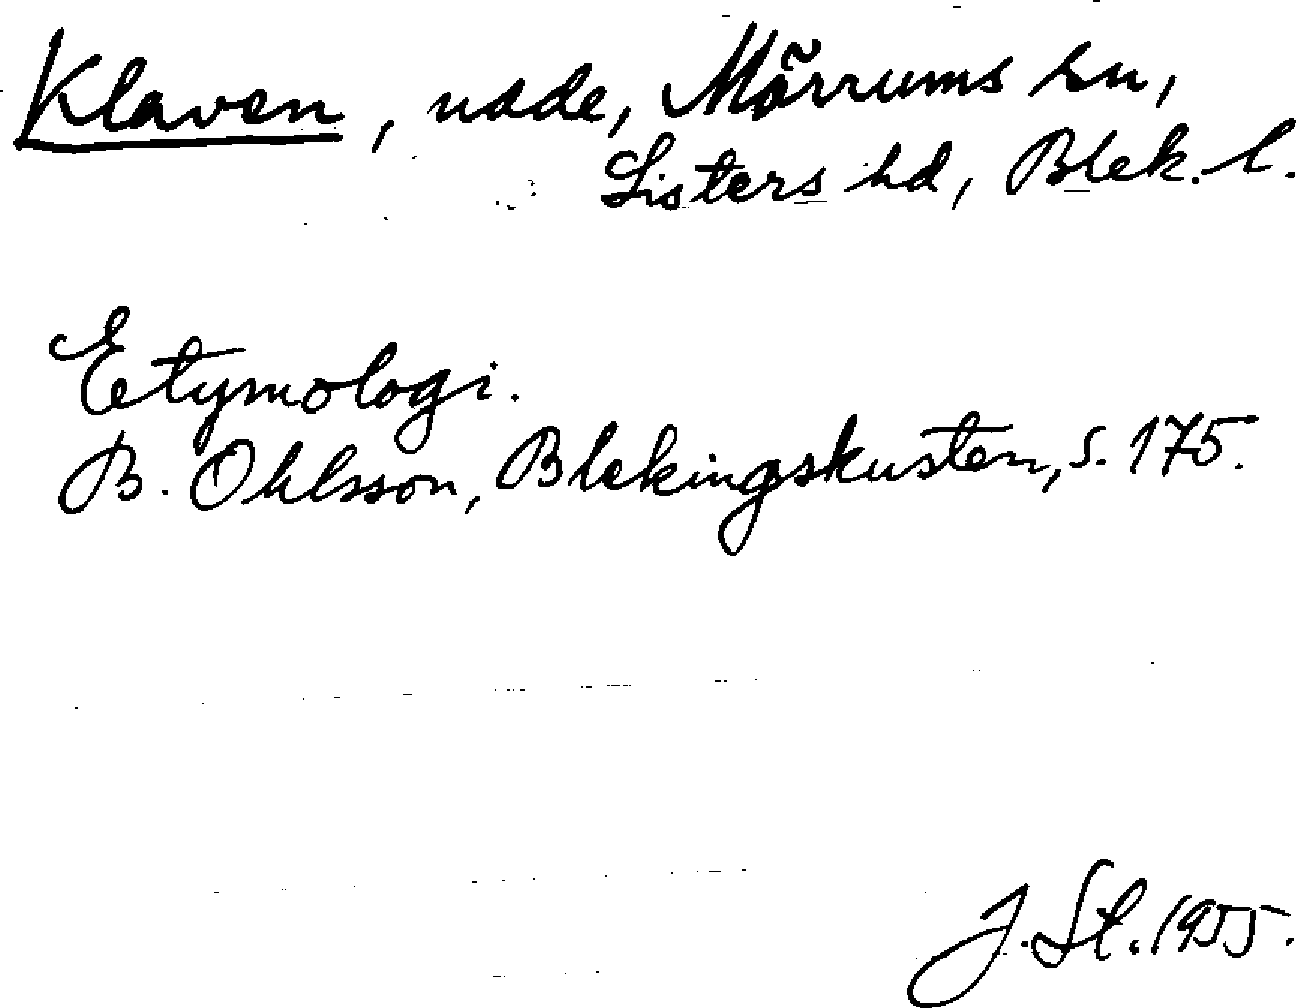 Klaven, udde, Mörrums sn,
Listers hd, Blek. l.
Etymologi.
B. Ohlsson, Blekingskusten, s. 175.
J. St. 1955.